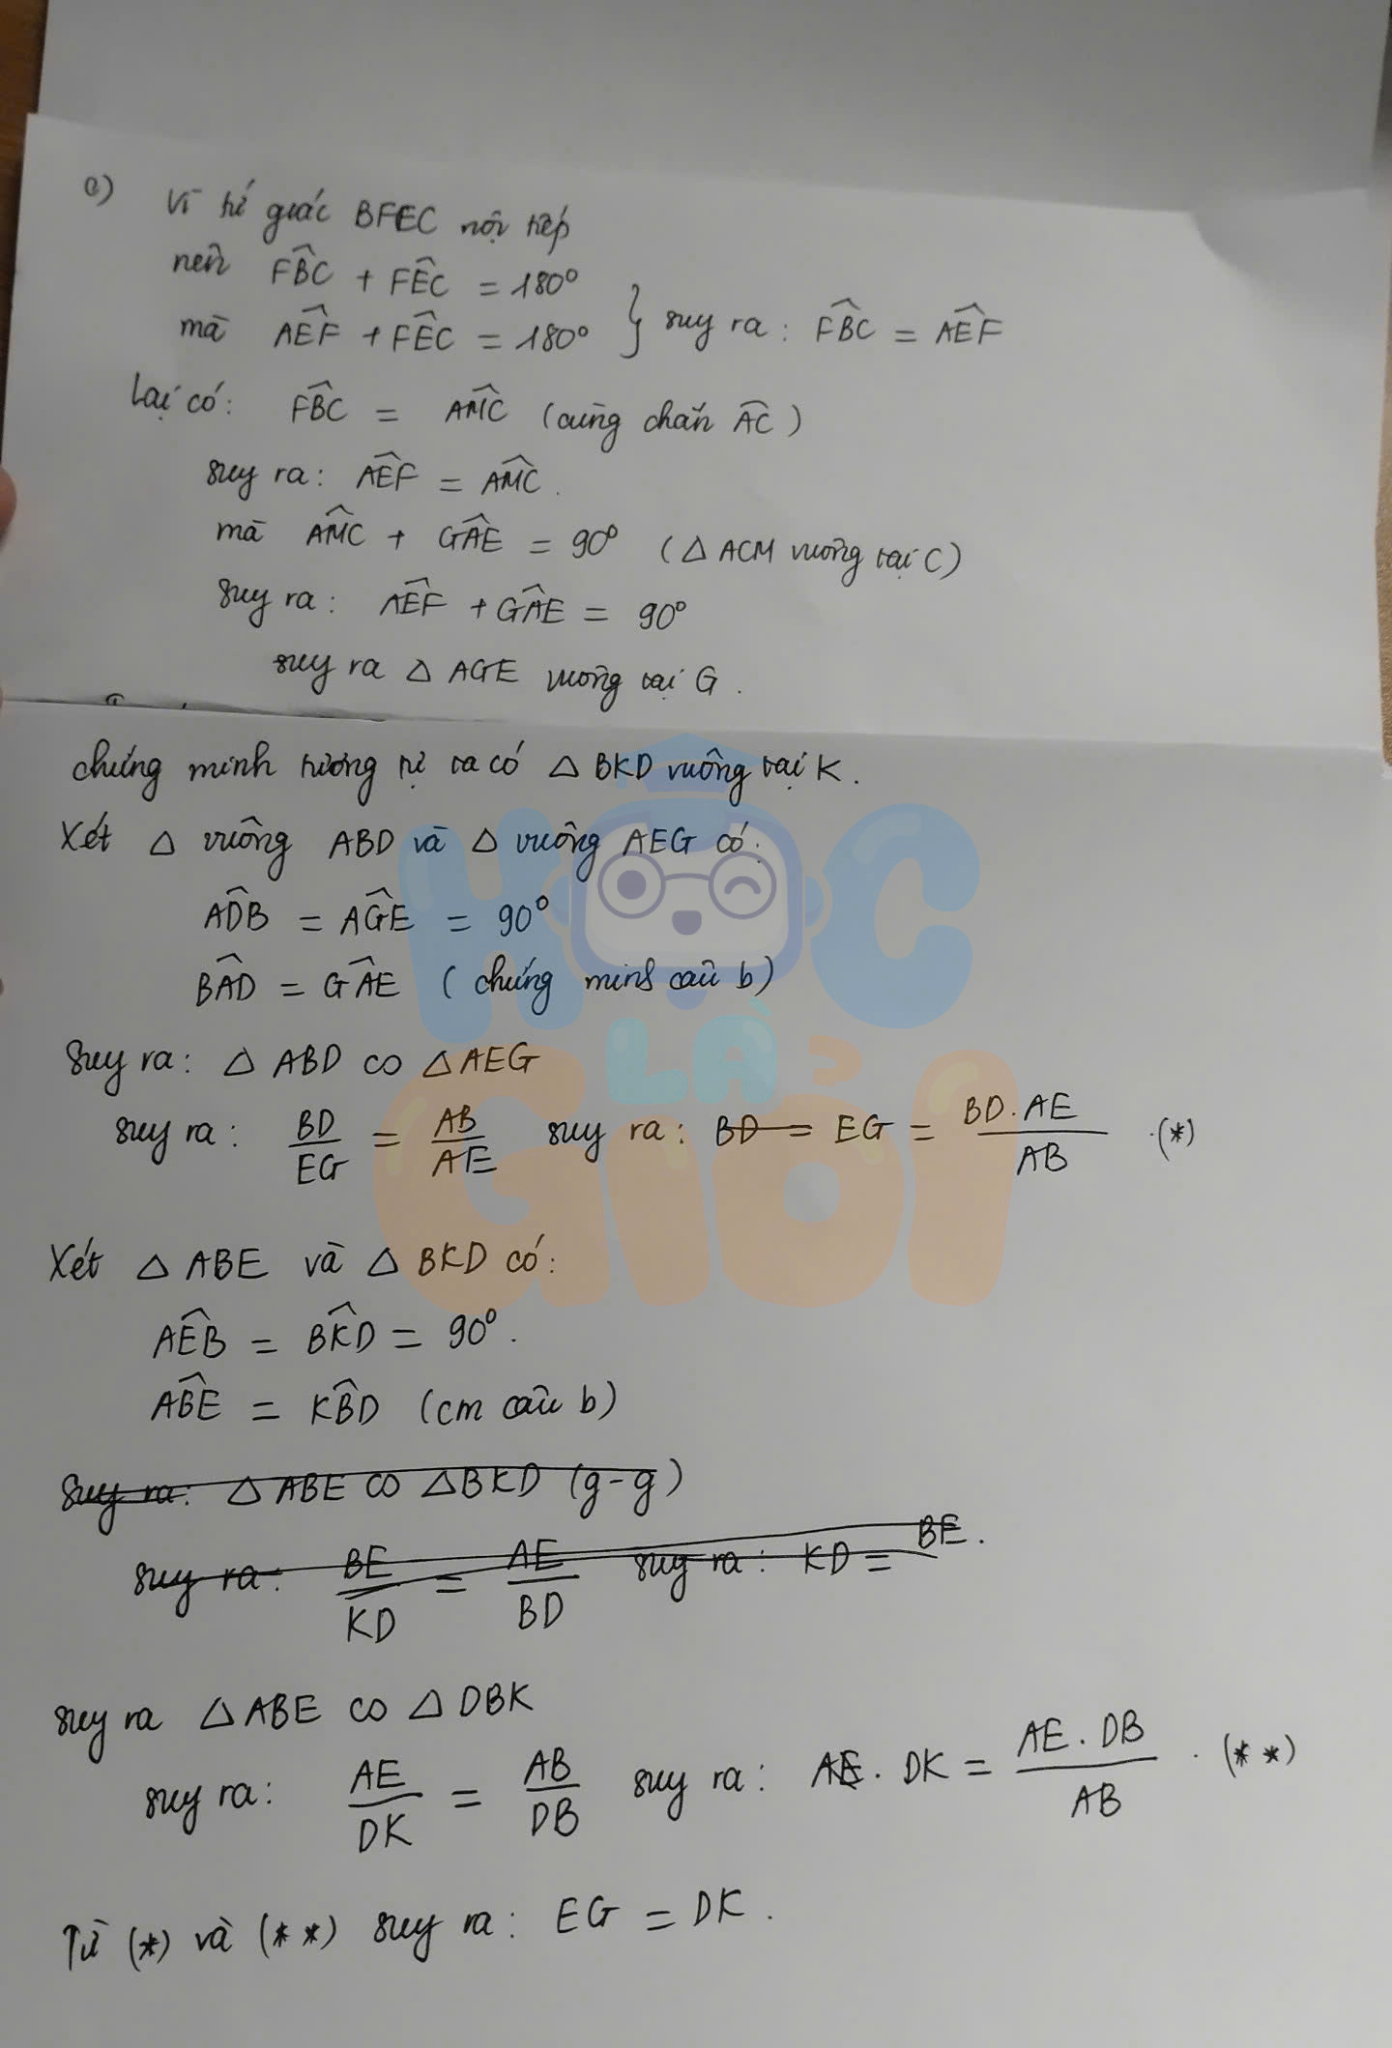 c) Vì tứ giác BFEC nội tiếp
nên FBC + FEC = 180°
mà AEF + FEC = 180° } suy ra : FBC = AEF
Lại có: FBC = AMC (cùng chắn AC)
suy ra: AEF = AMC.
mà AMC + GAE = 90° (△ ACM vuông tại C)
suy ra : AEF + GAE = 90°
suy ra △ AGE vuông tại G.
chứng minh tương tự ta có △ BKD vuông tại K.
Xét △ vuông ABD và △ vuông AEG có:
ADB = AGE = 90°
BAD = GAE ( chứng minh câu b)
Suy ra: △ ABD ∽ △AEG
suy ra: BD/EG = AB/AE suy ra: BD = EG = BD.AE/AB .(*)
Xét △ ABE và △ BKD có:
AEB = BKD = 90°.
ABE = KBD (cm câu b)
Suy ra: △ ABE ∽ △BKD (g-g)
suy ra: BE/KD = AE/BD suy ra: KD = BE.
suy ra △ABE ∽ △ DBK
suy ra: AE/DK = AB/DB suy ra: AE. DK = AE.DB/AB . (**)
Từ (*) và (**) suy ra: EG = DK.
HỌC
LÀ
GIỎI